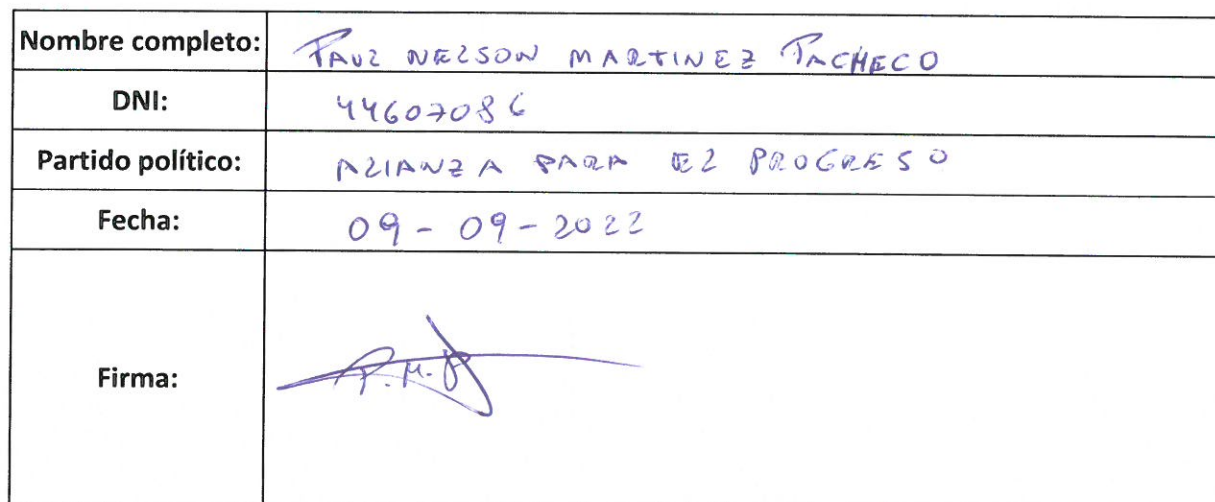 Nombre completo: PAUL NELSON MARTINEZ PACHECO
DNI: 44607086
Partido político: ALIANZA PARA EL PROGRESO
Fecha: 09-09-2022
Firma: P.M.P